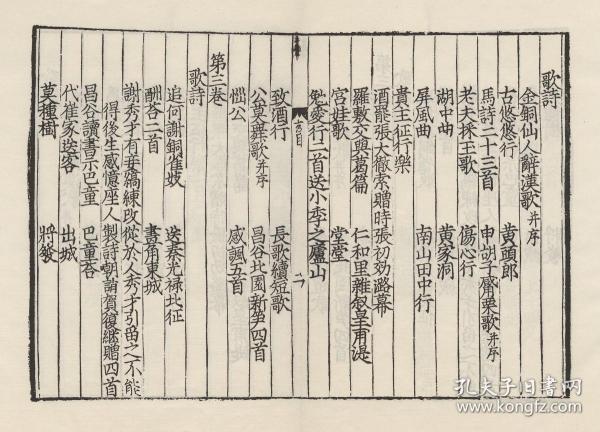 歌詩
金銅仙人辭漢歌并序　黃頭郎
古悠悠行
馬詩二十三首　申胡子觱栗歌并序
老夫採玉歌　傷心行
湖中曲　黃家洞
屏風曲　南山田中行
貴主征行樂
酒罷張大徹索贈時張初効潞幕
羅敷交與葛篇　仁和里雜叙皇甫湜
宮娃歌　堂堂
勉愛行二首送小季之廬山
致酒行　長歌續短歌
公莫舞歌并序　昌谷北園新笋四首
惱公　感諷五首
第三卷
歌詩
追何謝銅雀妓　送秦光祿北征
酬荅二首　畫角東城
謝秀才有妾縞練改從於人秀才引留之不能
得後生感憶座人製詩嘲誚賀復繼贈四首
昌谷讀書示巴童　巴童荅
代崔家送客　出城
莫種樹　將發
孔夫子旧书网
www.kongfz.com